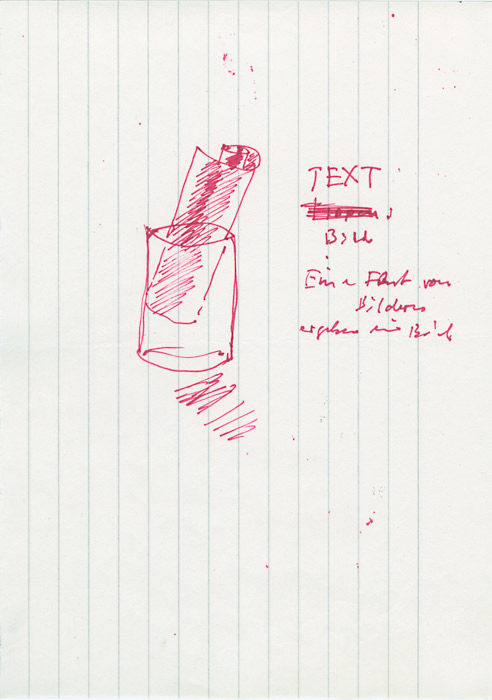 TEXT
Bild
Eine Flut von
Bildern
ergeben ein Bild